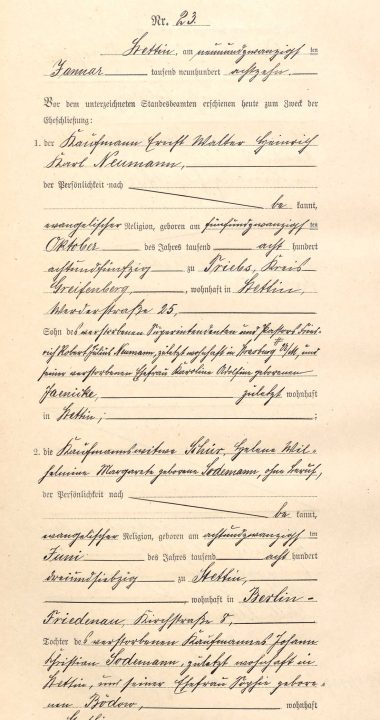 Nr. 23.
Stettin, am neunundzwanzigsten
Januar tausend neunhundert achtzehn.
Vor dem unterzeichneten Standesbeamten erschienen heute zum Zweck der
Eheschließung:
1. der Kaufmann Ernst Walter Heinrich
Karl Neumann,
der Persönlichkeit nach
be kannt,
evangelischer Religion, geboren am fünfundzwanzigsten
Oktober des Jahres tausend acht hundert
achtundfünfzig zu Triebs, Kreis
Greifenberg, wohnhaft in Stettin,
Werderstraße 25,
Sohn des verstorbenen Superintendenten und Pastors Fried-
rich Robert Julius Neumann, zuletzt wohnhaft in und
seiner verstorbenen Ehefrau Karoline geborenen
zuletzt wohnhaft
in Stettin;
2. die Kaufmannswitwe Schür, Helene Wil-
helmine Margarete geborene Sodemann, ohne Beruf,
der Persönlichkeit nach
be kannt,
evangelischer Religion, geboren am achtundzwanzigsten
Juni des Jahres tausend acht hundert
dreiundsiebzig zu Stettin,
wohnhaft in Berlin-
Friedenau, Kirchstraße 8,
Tochter des verstorbenen Kaufmannes Johann
Christian Sodemann, zuletzt wohnhaft in
Stettin, und seiner Ehefrau Sophie gebore-
nen Bödow, wohnhaft